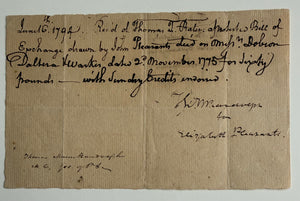 June 16th 1794. Rec'd of Thomas P. a protested Bill of
Exchange drawn by John Pleasants dec'd on Mess'rs Dobson
Daltera & Walker, dated 2d November 1775 for Sixty
pounds — with Sundry Credits endorsed.
for
Elizabeth Pleasants
Thomas Mann Randolph